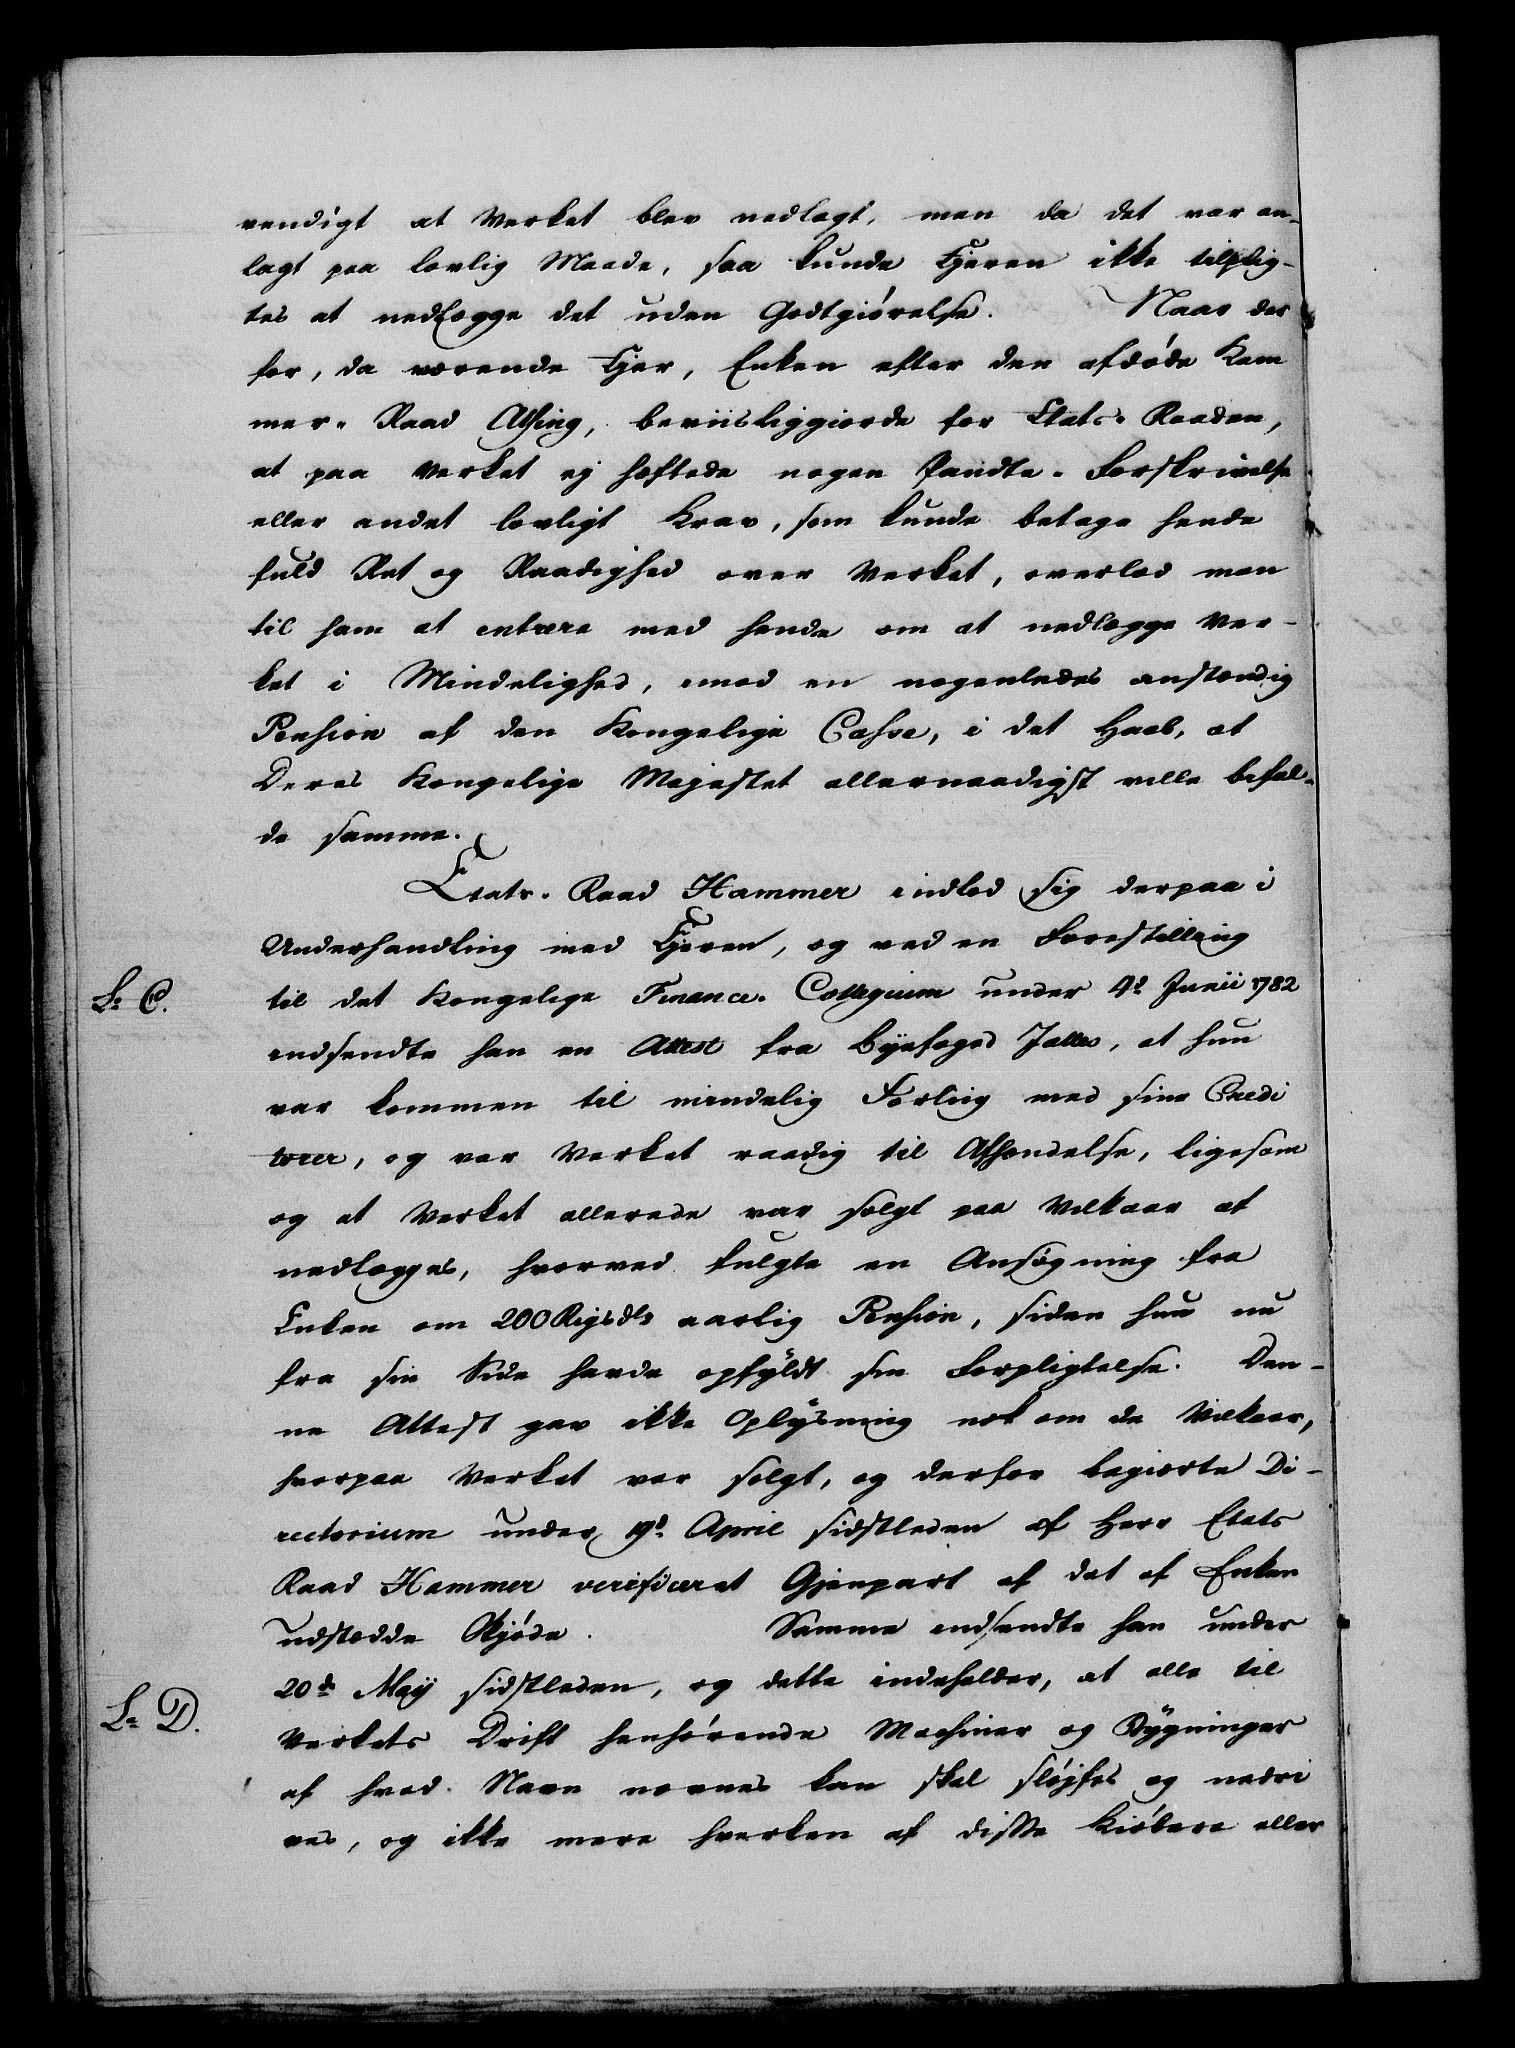 vendigt at Verket blev nedlagt, men da det var an-
lagt paa lovlig Maade, saa kunde Ejeren ikke tilplig-
tes at nedlægge det uden Godtgiørelse. Naar der
for, da værende Ejer, Enken efter den afdøde Kam
mer-Raad Alsing, beviisliggiorde for Etats-Raaden,
at paa Verket ej hæftede nogen Pandte-Forskrivelse
eller andet lovligt Krav, som kunde betage hende
fuld Ret og Raadighed over Verket, overlod man
til ham at entrere med hende om at nedlægge Ver-
ket i Mindelighed, imod en nogenledes anstændig
Pension af den Kongelige Casse, i det Haab, at
Deres Kongelige Majestet allernaadigst ville bifal-
de samme.
Etats-Raad Hammer indlod sig derpaa i
Underhandling med Ejeren, og ved en Forestilling
Lr. C. til det Kongelige Finance-Collegium under 4d Junii 1782
indsendte han en Attest fra Byefoged , at hun
var kommen til mindelig Forling med sine Credi
torer, og var Verket raadig til Afhændelse, ligesom
og at Verket allerede var solgt paa Vilkaar at
nedlægges, hvorved fulgte en Ansøgning fra
Enken om 200 Rigsdlr aarlig Pension, siden hun nu
fra sin Side havde opfyldt sin Forpligtelse. Den-
ne Attest gav ikke Oplysning nok om de Vilkaar,
hvorpaa Verket var solgt, og derfor begiærte Di-
rectorium under 19d April sidstleden af Herr Etats
Raad Hammer verificeret Gjenpart af det af Enken
udstædde Skjøde. Samme indsendte han under
Lr. D. 20de Maij sidstleden, og dette indeholder, at alle til
Verkets Drift henhørende Machiner og Bygninger
af hvad Navn nævnes kan skal sløjfes og nedri
ves, og ikke mere hverken af disse Kiøbere eller